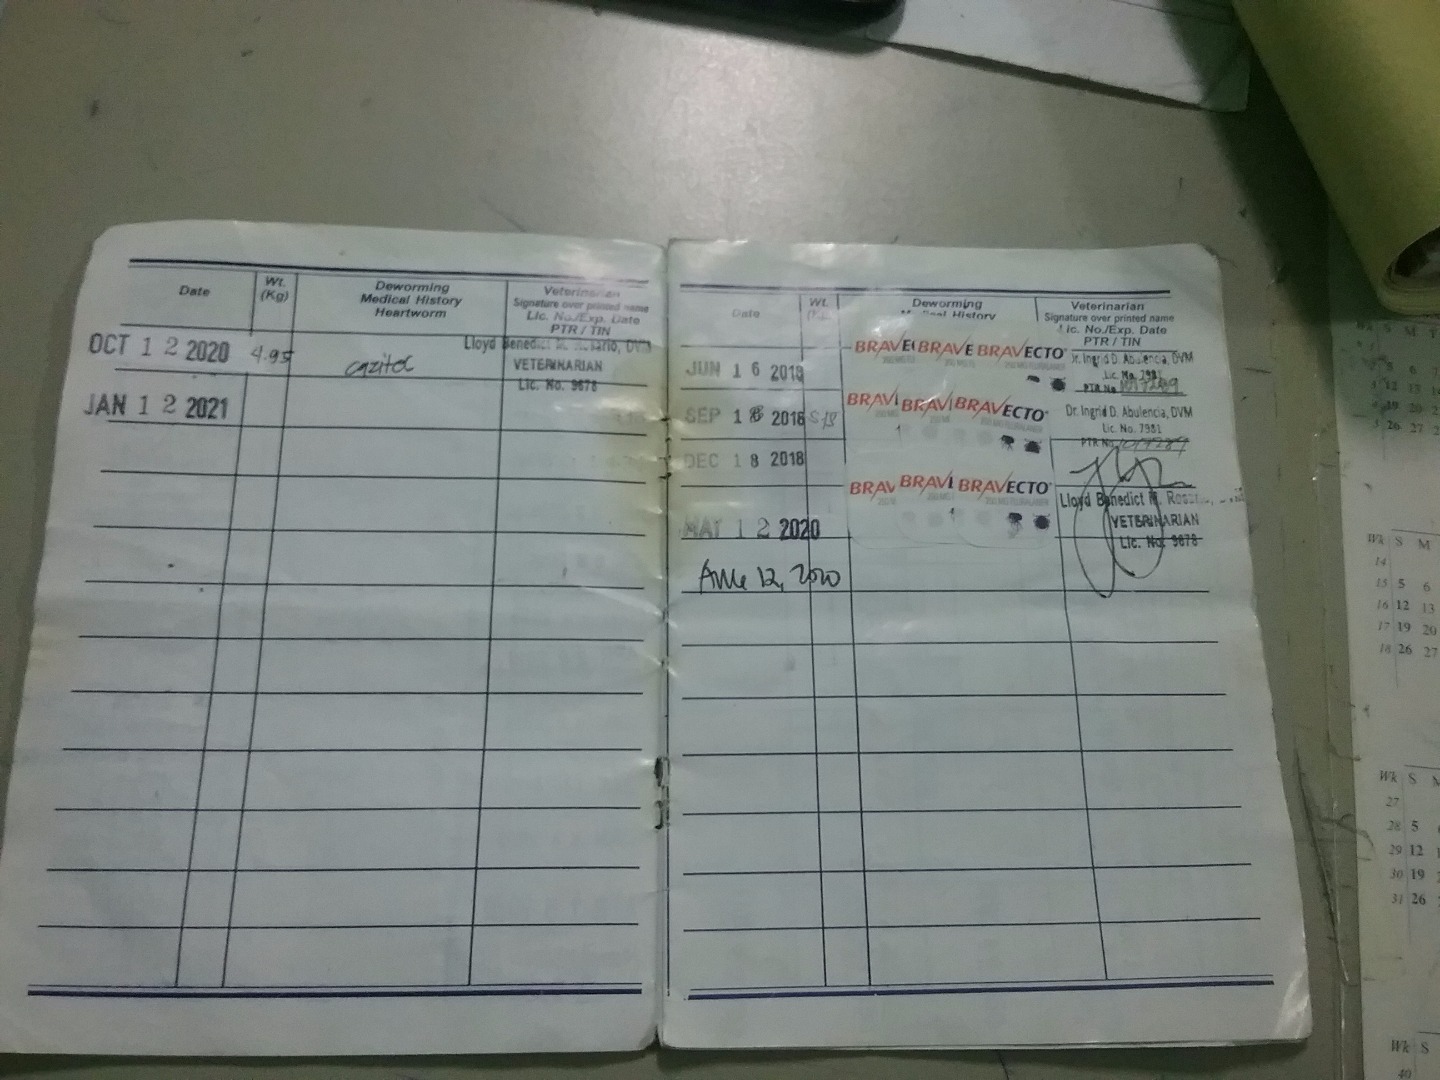 Date
Wt.
(Kg)
Deworming
Medical History
Heartworm
Veterinarian
Signature over printed name
Lic. No./Exp. Date
PTR / TIN
OCT 12 2020
4.95
Lloyd Benedict M. Rosario, DVM
VETERINARIAN
Lic. No. 9678
JAN 12 2021
Date
Wt.
Deworming
Medical History
Veterinarian
Signature over printed name
Lic. No./Exp. Date
PTR / TIN
JUN 16 2018
BRAVE BRAVE BRAVECTO
Dr. Ingrid D. Abulencia, DVM
Lic. No. 7981
PTR No.
SEP 18 2018
BRAV BRAV BRAVECTO
Dr. Ingrid D. Abulencia, DVM
Lic. No. 7981
PTR No.
DEC 18 2018
BRAV BRAV BRAVECTO
Lloyd Benedict M.
MAY 12 2020
VETERINARIAN
Lic. No. 9678
12, 2020
Wk S M
14
15 5 6
16 12 13
17 19 20
18 26 27
Wk S
27
28 5
29 12
30 19
31 26
Wk S
40